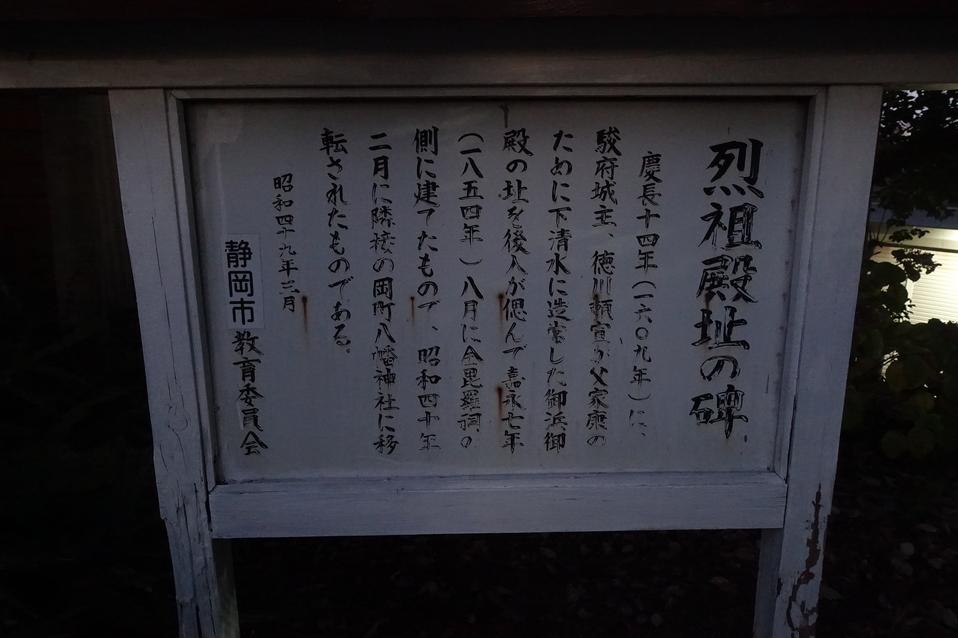 烈祖殿址の碑
慶長十四年(一六〇九年)に、
駿府城主、徳川頼宣が父家康の
ために下清水に造営した御浜御
殿の址を後人が偲んで嘉永七年
(一八五四年)八月に金毘羅祠の
側に建てたもので、昭和四十年
二月に隣接の岡町八幡神社に移
転されたものである。
昭和四十九年三月
静岡市教育委員会